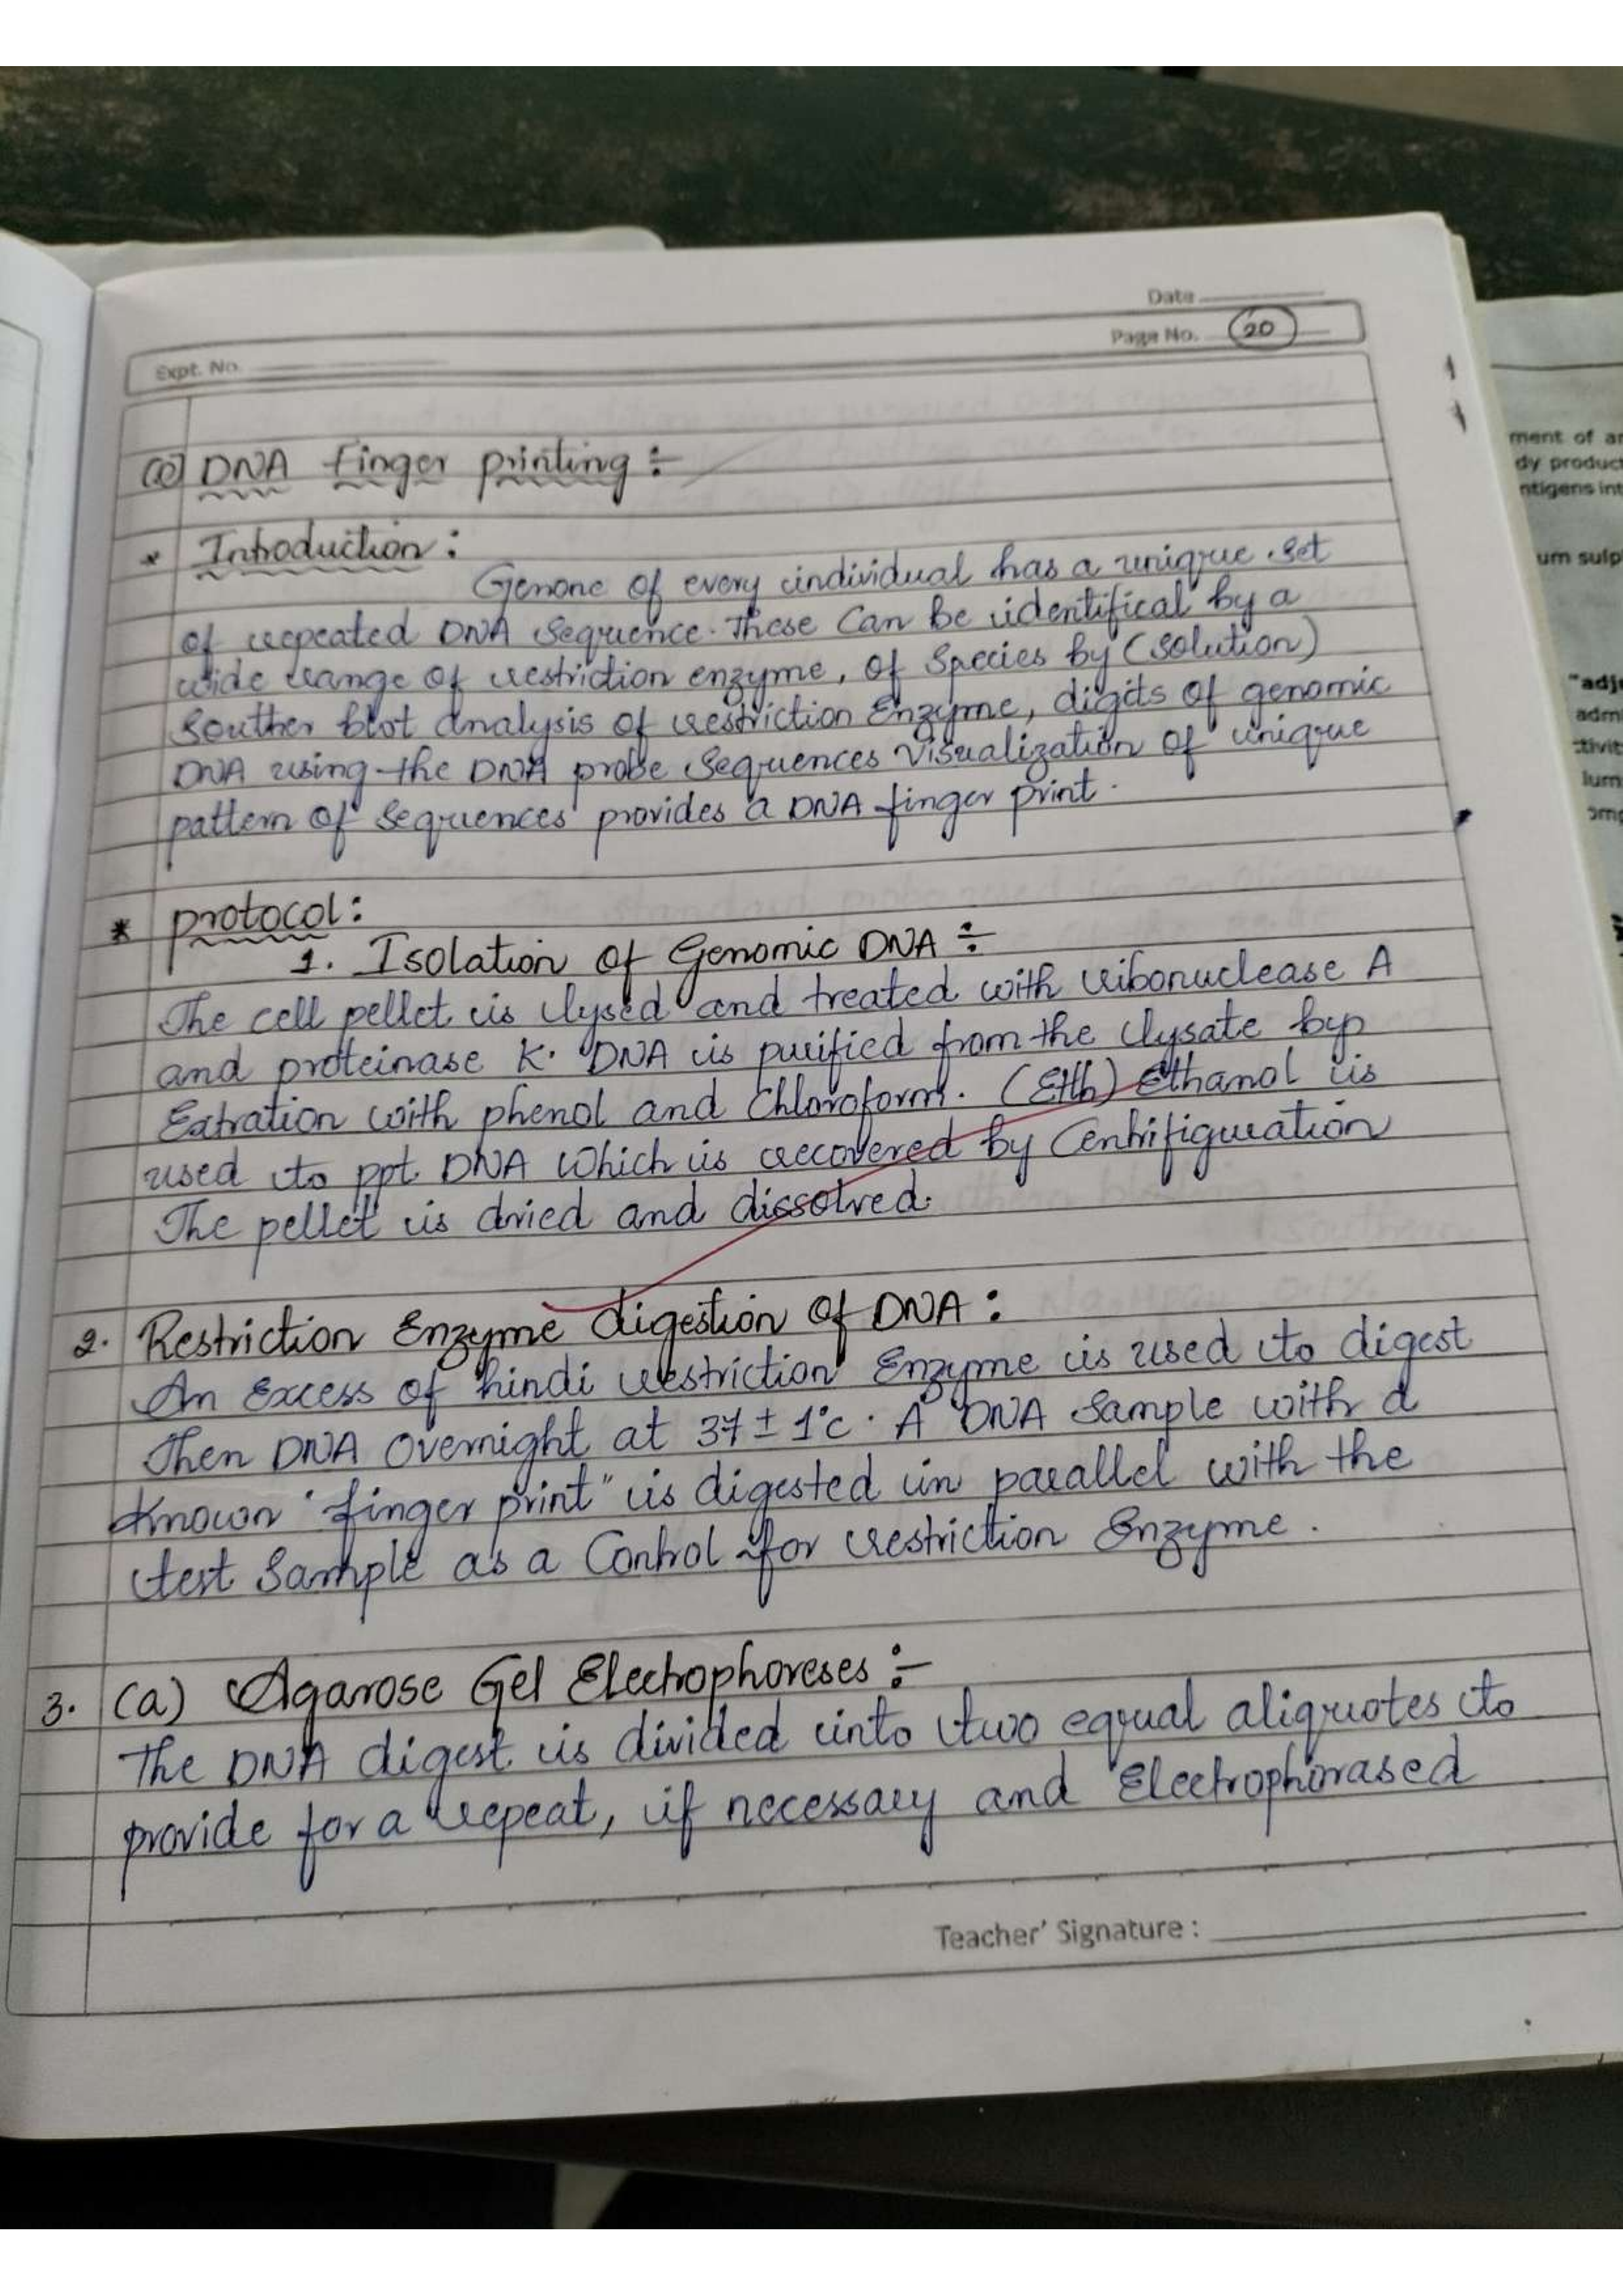 Date
Page No. 20
Expt. No.
(e) DNA finger printing :-
* Introduction :
Genone of every individual has a unique set
of repeated DNA Sequence. These Can be identifical by a
wide range of restriction enzyme, of Species by (Solution)
Souther blot analysis of restriction Enzyme, digits of genomic
DNA using the DNA probe Sequences Visualization of unique
pattern of Sequences provides a DNA finger print.
* protocol :
1. Isolation of Genomic DNA :-
The cell pellet is lysed and treated with ribonuclease A
and proteinase K. DNA is purified from the lysate by
Extration with phenol and Chloroform. (Eth) Ethanol is
used to ppt. DNA Which is recovered by Centrifiguration
The pellet is dried and dissolved.
2. Restriction Enzyme digestion Of DNA :
An Excess of hindi restriction Enzyme is used to digest
Then DNA Overnight at 37 ± 1°c. A DNA Sample with a
Known "finger print" is digested in parallel with the
test Sample as a Control for restriction Enzyme.
3. (a) Agarose Gel Electrophoreses :-
The DNA digest is divided into two equal aliquotes to
provide for a repeat, if necessary and Electrophorased
Teacher' Signature :
ment of
dy product
ntigens int
um sulp
"adj
adm